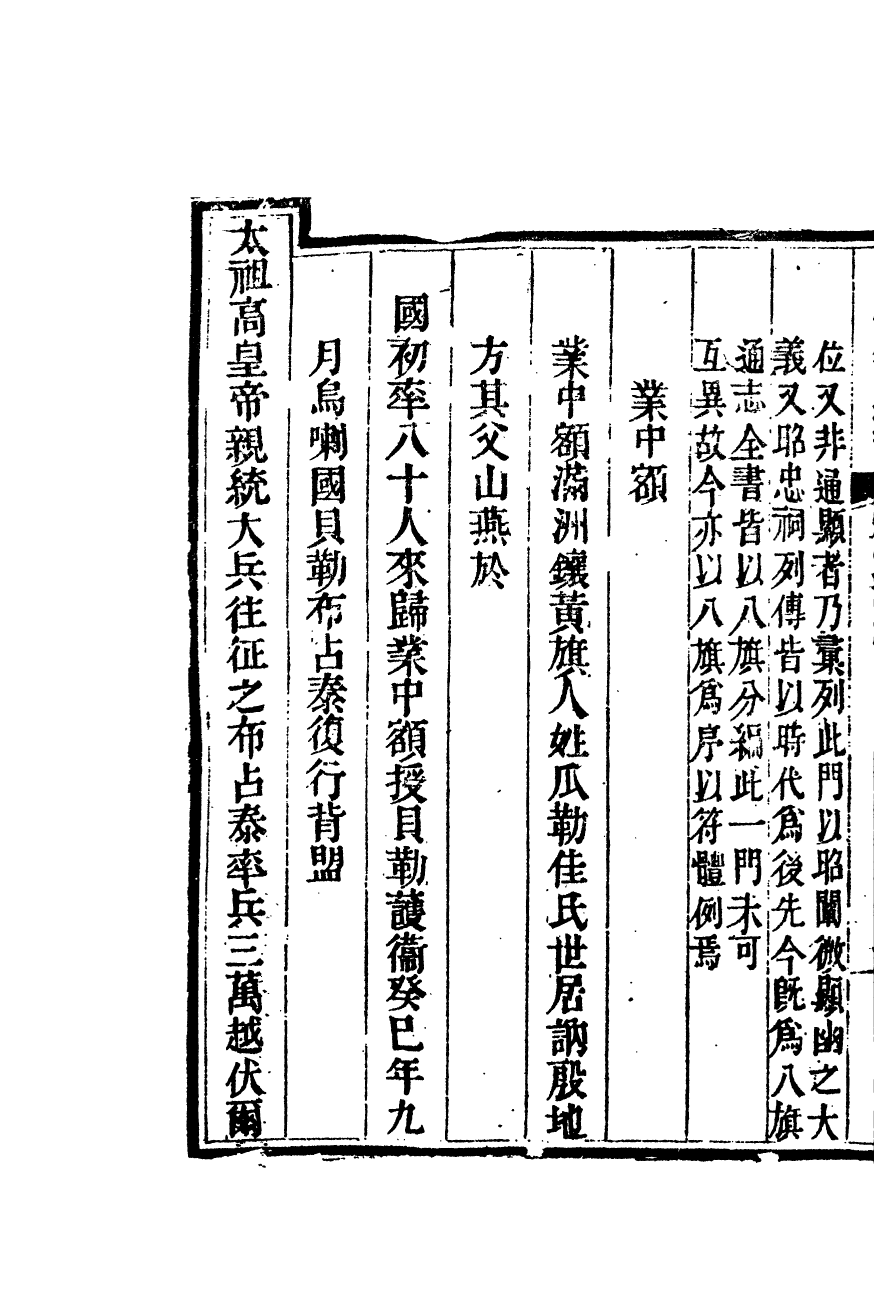 位又非通顯者乃彚列此門以昭闡微顯幽之大
義又昭忠祠列傳皆以時代爲後先今旣爲八旗
通志全書皆以八旗分編此一門未可
互異故今亦以八旗爲序以符體例焉
業中額
業中額滿洲鑲黃旗人姓瓜勒佳氏世居訥殷地
方其父山燕於
國初率八十人來歸業中額授貝勒護衞癸巳年九
月烏喇國貝勒布占泰復行背盟
太祖高皇帝親統大兵往征之布占泰率兵三萬越伏爾